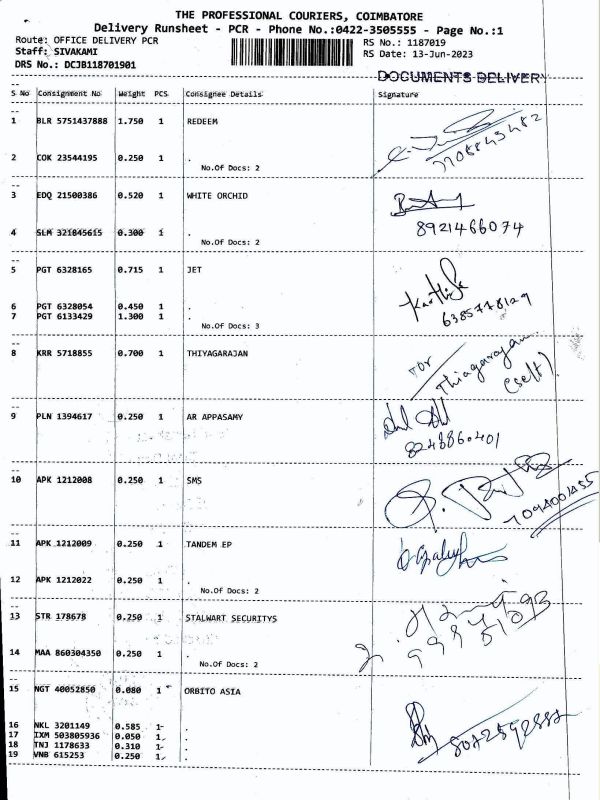 THE PROFESSIONAL COURIERS, COIMBATORE
Delivery Runsheet - PCR - Phone No.:0422-3505555 - Page No.:1
Route: OFFICE DELIVERY PCR RS No.: 1187019
Staff: SIVAKAMI RS Date: 13-Jun-2023
DRS No.: DCJB118701901
DOCUMENTS DELIVERY
S No Consignment No Weight PCS Consignee Details Signature
1 BLR 5751437888 1.750 1 REDEEM
7708843482
2 COK 23544195 0.250 1 .
No.Of Docs: 2
3 EDQ 21500386 0.520 1 WHITE ORCHID
4 SLM 321845615 0.300 1 . 8921466074
No.Of Docs: 2
5 PGT 6328165 0.715 1 JET
Karthik
6 PGT 6328054 0.450 1 .
7 PGT 6133429 1.300 1 . 6385778129
No.Of Docs: 3
8 KRR 5718855 0.700 1 THIYAGARAJAN
For Thiagarajan
(self).
9 PLN 1394617 0.250 1 AR APPASAMY
8248860401
10 APK 1212008 0.250 1 SMS
7094001455
11 APK 1212009 0.250 1 TANDEM EP
12 APK 1212022 0.250 1 .
No.Of Docs: 2
13 STR 178678 0.250 1 STALWART SECURITYS
14 MAA 860304350 0.250 1 .
No.Of Docs: 2
15 NGT 40052850 0.080 1 ORBITO ASIA
16 NKL 3201149 0.585 1 .
17 IXM 503805936 0.050 1 .
18 TNJ 1178633 0.310 1 .
19 VNB 615253 0.250 1 .